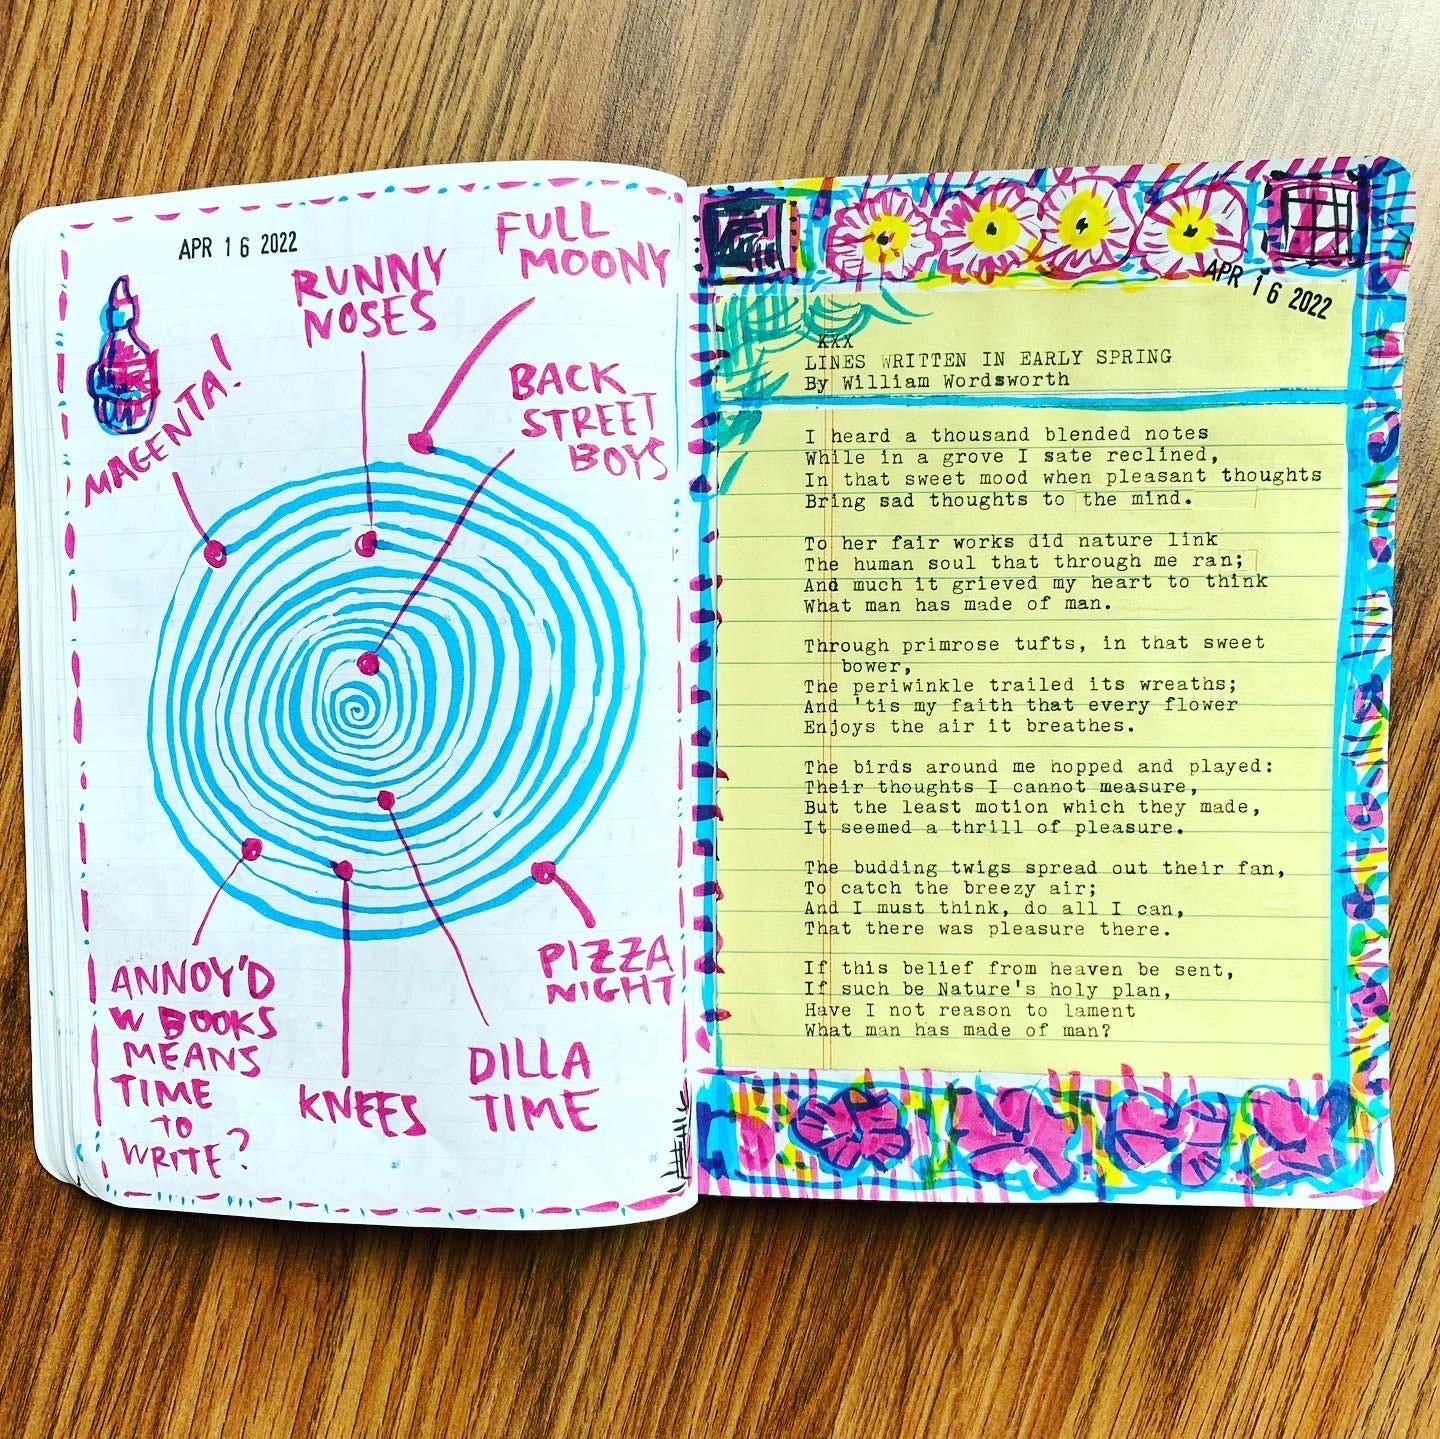 APR 16 2022
MAGENTA!
RUNNY
NOSES
FULL
MOONY
BACK
STREET
BOYS
ANNOY'D
W BOOKS
MEANS
TIME
TO
WRITE?
KNEES
DILLA
TIME
PIZZA
NIGHT
APR 16 2022
XXX
LINES WRITTEN IN EARLY SPRING
By William Wordsworth
I heard a thousand blended notes
While in a grove I sate reclined,
In that sweet mood when pleasant thoughts
Bring sad thoughts to the mind.
To her fair works did nature link
The human soul that through me ran;
And much it grieved my heart to think
What man has made of man.
Through primrose tufts, in that sweet
bower,
The periwinkle trailed its wreaths;
And 'tis my faith that every flower
Enjoys the air it breathes.
The birds around me hopped and played:
Their thoughts I cannot measure,
But the least motion which they made,
It seemed a thrill of pleasure.
The budding twigs spread out their fan,
To catch the breezy air;
And I must think, do all I can,
That there was pleasure there.
If this belief from heaven be sent,
If such be Nature's holy plan,
Have I not reason to lament
What man has made of man?